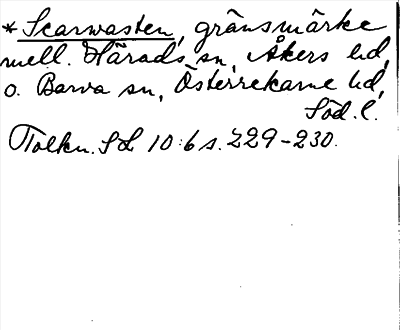 *Scarwasten, gränsmärke
mell. Härads sn, Åkers hd,
o. Barva sn, Österrekarne hd,
Söd. l.
Tolkn. SL 10:6 s. 229-230.